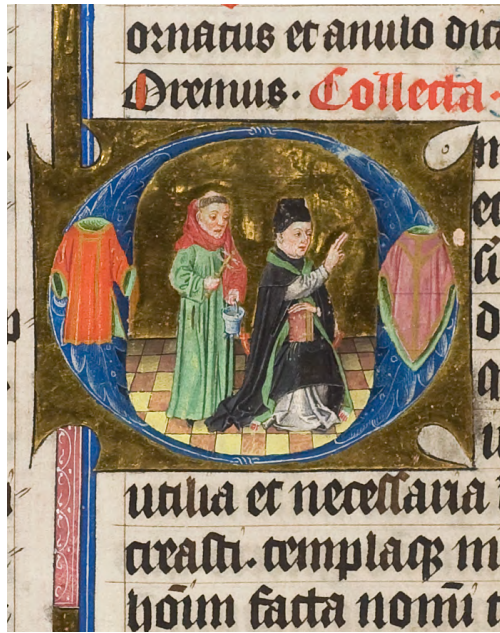 ornatus et anulo dic
Oremus. Collecta.
utilia et necessaria
creasti. templaq; m
hoīm facta nomī t